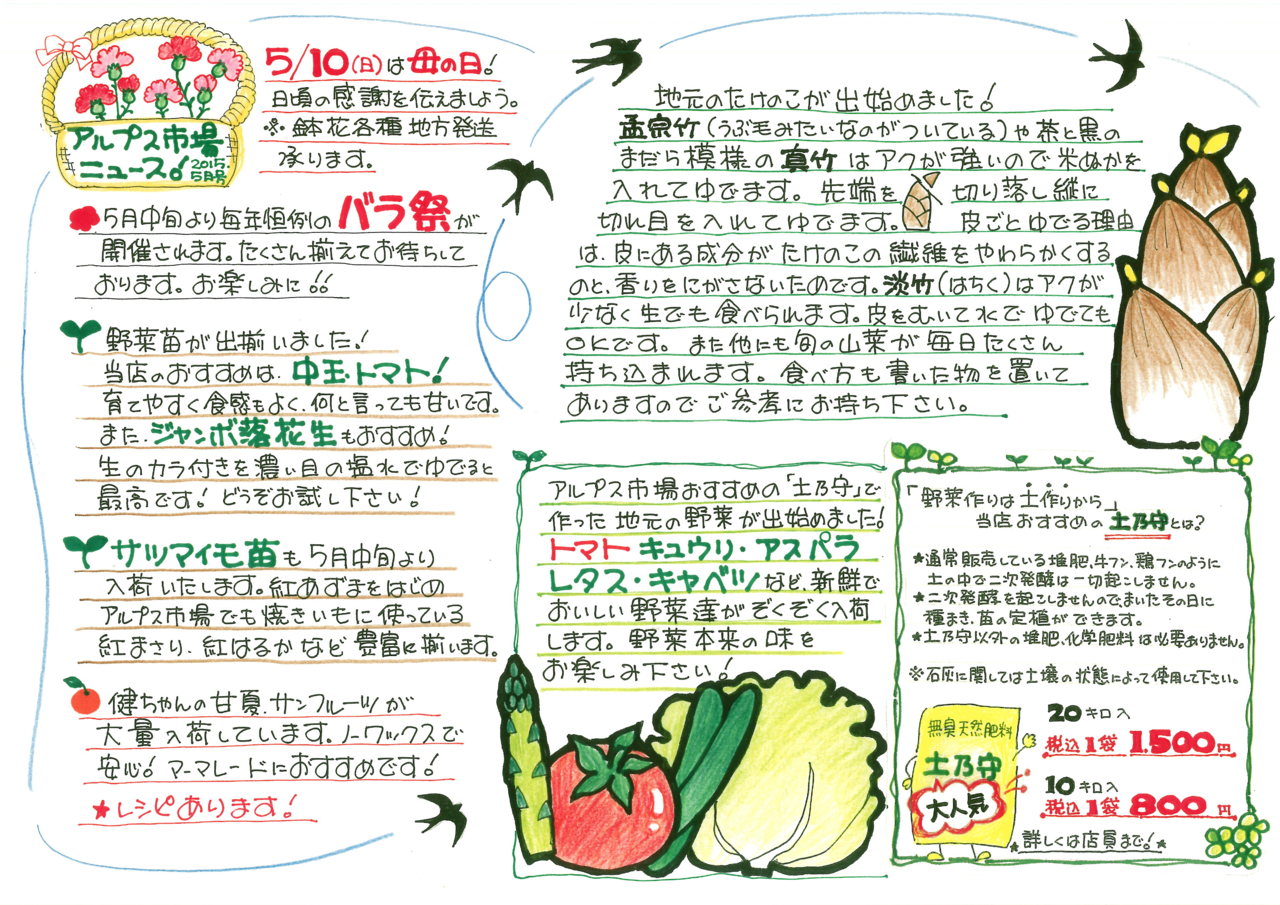 アルプス市場
ニュース! 2015.
5月号
5/10(日)は母の日!
日頃の感謝を伝えましょう。
※鉢花各種地方発送
承ります。
5月中旬より毎年恒例のバラ祭が
開催されます。たくさん揃えてお待ちして
おります。お楽しみに!!
野菜苗が出揃いました!
当店のおすすめは、中玉トマト!
育てやすく食感もよく、何と言っても甘いです。
また、ジャンボ落花生もおすすめ!
生のカラ付きを濃い目の塩水でゆでると
最高です!どうぞお試し下さい!
サツマイモ苗も5月中旬より
入荷いたします。紅あずまをはじめ
アルプス市場でも焼きいもに使っている
紅まさり、紅はるかなど豊富に揃います。
健ちゃんの甘夏、サンフルーツが
大量入荷しています。ノーワックスで
安心!マーマレードにおすすめです!
★レシピあります!
地元のたけのこが出始めました!
孟宗竹(うぶ毛みたいなのがついている)や茶と黒の
まだら模様の真竹はアクが強いので米ぬかを
入れてゆでます。先端を切り落し縦に
切れ目を入れてゆでます。皮ごとゆでる理由
は、皮にある成分がたけのこの繊維をやわらかくする
のと、香りをにがさないためです。淡竹(はちく)はアクが
少なく生でも食べられます。皮をむいて水でゆでても
OKです。また他にも旬の山菜が毎日たくさん
持ち込まれます。食べ方も書いた物を置いて
ありますのでご参考にお持ち下さい。
アルプス市場おすすめの「土乃守」で
作った地元の野菜が出始めました!
トマト キュウリ・アスパラ
レタス・キャベツなど、新鮮で
おいしい野菜達がぞくぞく入荷
します。野菜本来の味を
お楽しみ下さい!
「野菜作りは土作りから」
当店おすすめの土乃守とは?
★通常販売している堆肥、牛フン、鶏フンのように
土の中で二次発酵は一切起こしません。
★二次発酵を起こしませんので、まいたその日に
種まき、苗の定植ができます。
★土乃守以外の堆肥、化学肥料は必要ありません。
※石灰に関しては土壌の状態によって使用して下さい。
無臭天然肥料
土乃守
大人気
20キロ入
税込1袋 1.500円
10キロ入
税込1袋 800円
★詳しくは店員まで!★